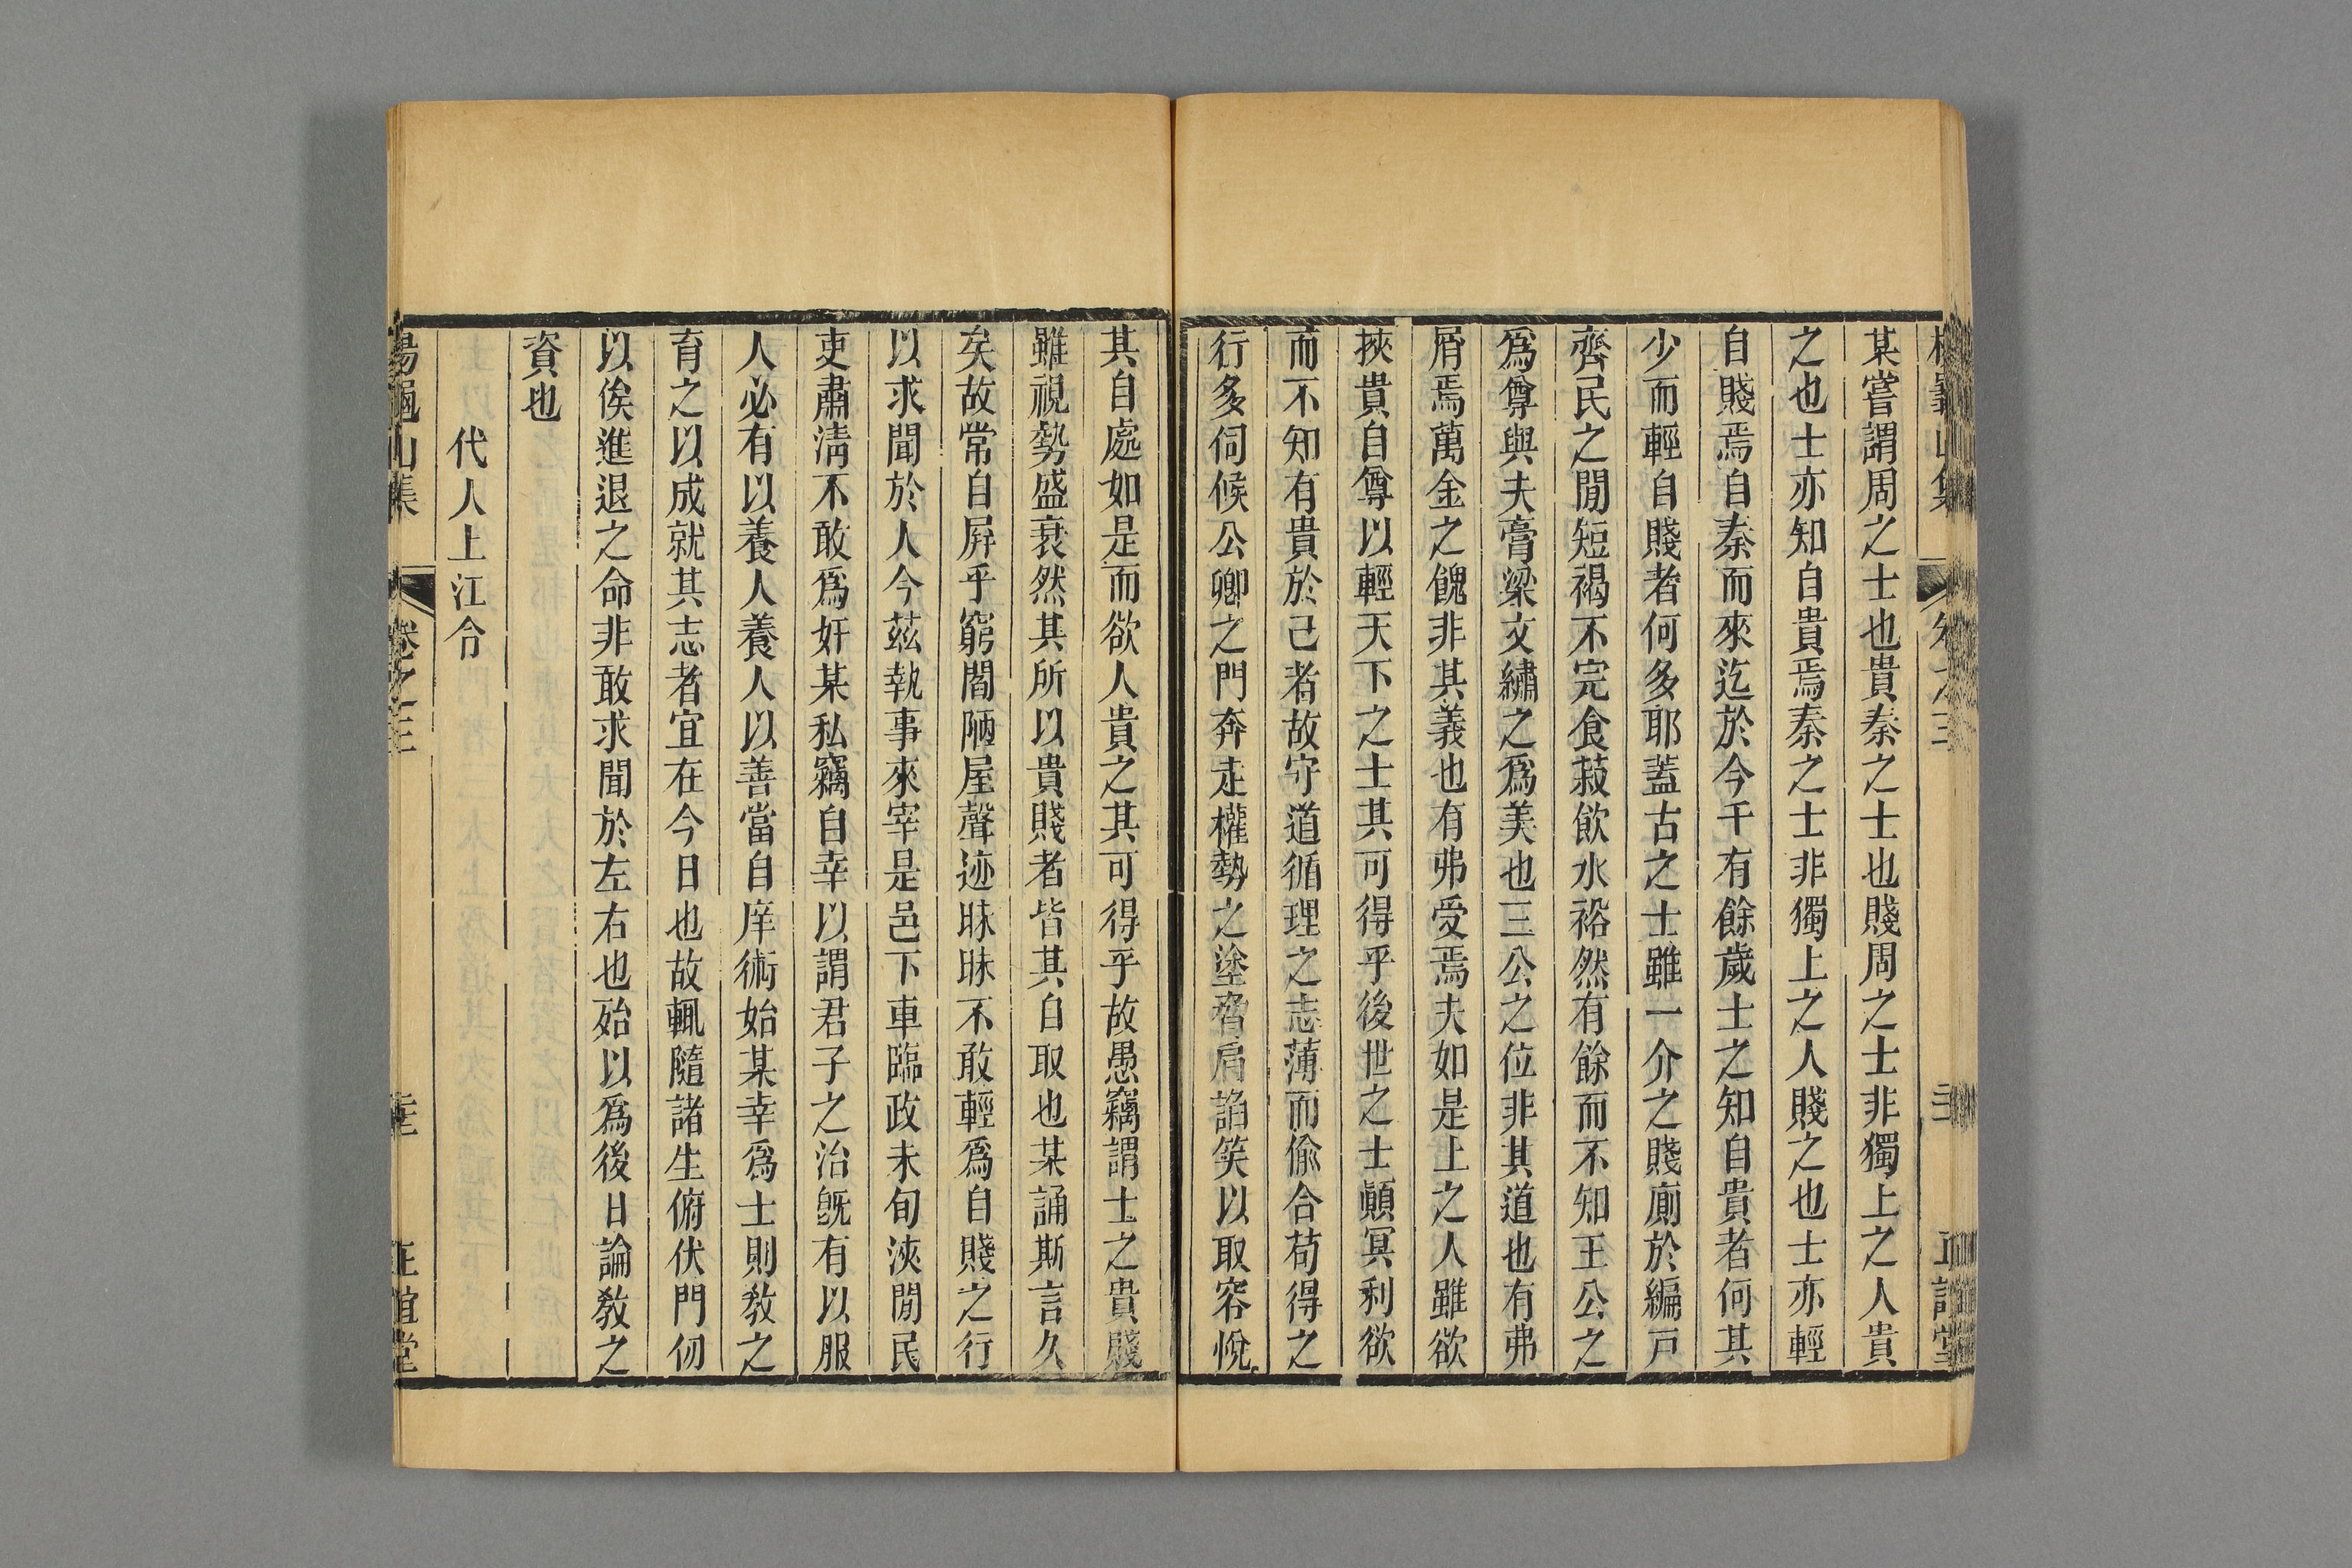 某嘗謂周之士也貴秦之士也賤周之士非獨上之人貴
之也士亦知自貴焉秦之士非獨上之人賤之也士亦輕
自賤焉自秦而來迄於今千有餘歲士之知自貴者何其
少而輕自賤者何多耶蓋古之士雖一介之賤廁於編戸
齊民之閒短褐不完食菽飲水裕然有餘而不知王公之
爲尊與夫膏粱文繡之爲美也三公之位非其道也有弗
屑焉萬金之餽非其義也有弗受焉夫如是上之人雖欲
挾貴自尊以輕天下之士其可得乎後世之士顚冥利欲
而不知有貴於己者故守道循理之志薄而偸合苟得之
行多伺候公卿之門奔走權勢之塗脅肩諂笑以取容悅
其自處如是而欲人貴之其可得乎故愚竊謂士之貴賤
雖視勢盛衰然其所以貴賤者皆其自取也某誦斯言久
矣故常自屛乎窮閻陋屋聲迹昧昧不敢輕爲自賤之行
以求聞於人今茲執事來宰是邑下車臨政未旬浹閒民
吏肅淸不敢爲奸某私竊自幸以謂君子之治旣有以服
人必有以養人養人以善當自庠術始某幸爲士則敎之
育之以成就其志者宜在今日也故輒隨諸生俯伏門仞
以俟進退之命非敢求聞於左右也殆以爲後日論敎之
資也
代人上江令
楊龜山集 卷之三 正誼堂